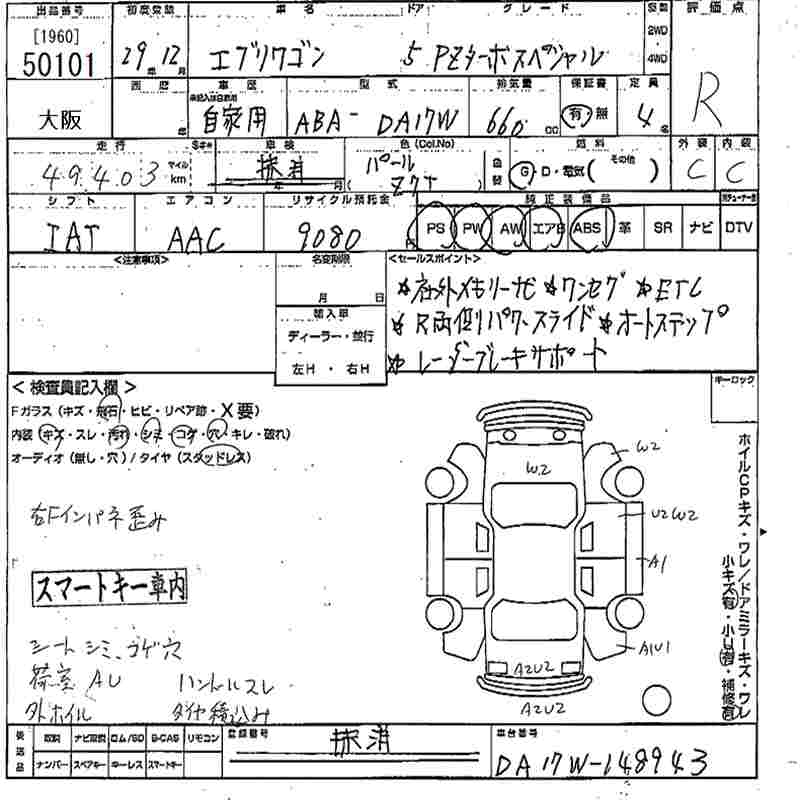 出品番号 初度登録 車名 ドア グレード 駆動 評価点
[1960] 2WD
50101 29年12月 エブリワゴン 5 PZターボスペシャル 4WD R
西暦 車歴 型式 排気量 保証書 定員
大阪 年 自家用 ABA- DA17W 660cc 有・無 4名
走行 Sキ* 車検 色(Col.No) 燃料 外装 内装
49403 マイル km 抹消 年 月 パール 色替 G・D・電気( その他 ) C C
Z7T
シフト エアコン リサイクル預託金 純正装備品
IAT AAC 9080円 PS PW AW エアB ABS 革 SR ナビ DTV
<注意事項> 名変期限 <セールスポイント>
月 日 *社外メモリーナビ *ワンセグ *ETC
輸入車 *R両側パワースライド *オートステップ
ディーラー・並行 *レーダーブレーキサポート
左H・右H
キーロック
<検査員記入欄>
Fガラス(キズ・飛石・ヒビ・リペア跡・X要)
内装(キズ・スレ・汚れ・シミ・コゲ・穴・キレ・破れ)
オーディオ(無し・穴)/タイヤ(スタッドレス)
右Fインパネ歪み
スマートキー車内
シートシミ、コゲ穴
荷室AU ハンドルスレ
外ホイル タイヤ積込み
W2
W2
U2W2
A1
A1U1
A2U2
A2U2
ホイルCPキズ・ワレ/ドアミラーキズ・ワレ
小キズ有・小U有・補修有
後送品 取説 ナビ取説 ロム/SD B-CAS リモコン 登録番号 車台番号
ナンバー スペアキー キーレス スマートキー 抹消 DA17W-148943